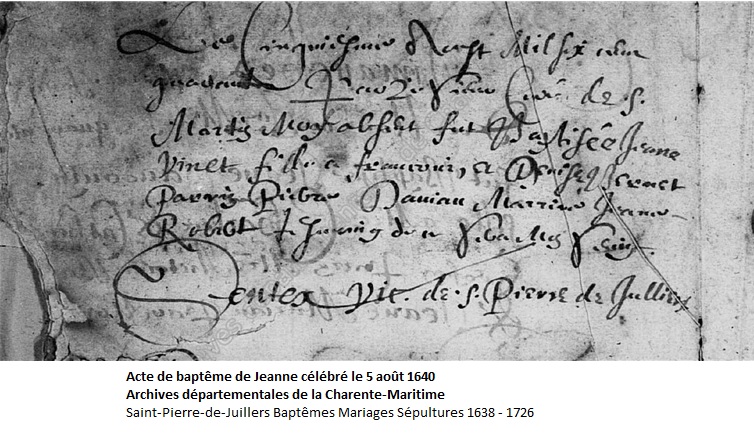 Le Cinquiesme d'Aoust Mil six cens
quarante Par Sieur Curé de S.
Martin Moy absent fut Baptisée Jeane
Vinet fille a francoys et Denise
Parrin Pierre Marrine Jeanne
Robert
Gentes Vic. de S. Pierre de Julliers
Acte de baptême de Jeanne célébré le 5 août 1640
Archives départementales de la Charente-Maritime
Saint-Pierre-de-Juillers Baptêmes Mariages Sépultures 1638 - 1726